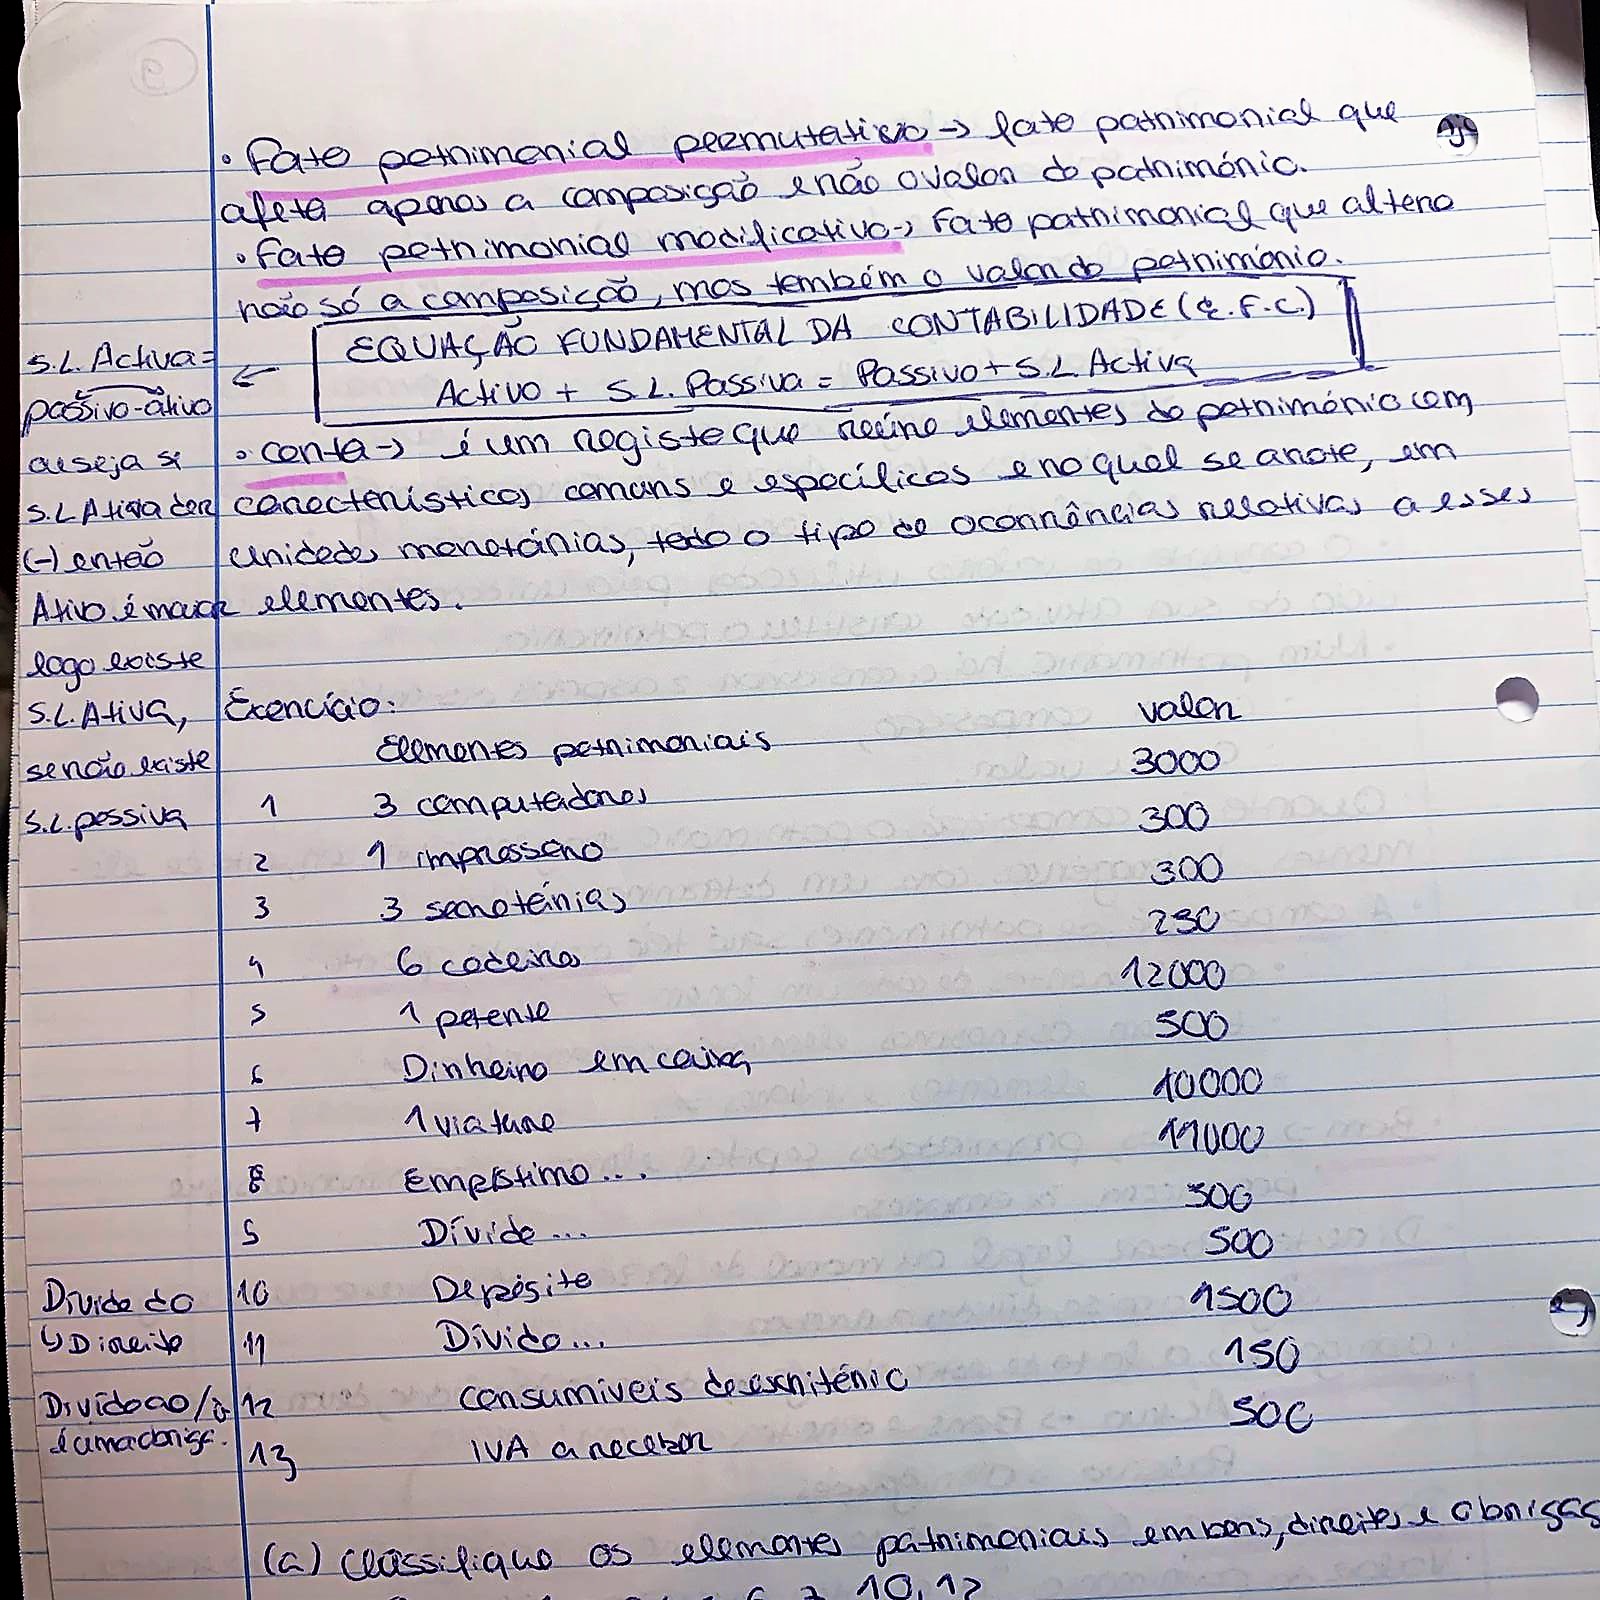 • Fato patrimonial permutativo → fato patrimonial que
afeta apenas a composição e não o valor do património.
• Fato patrimonial modificativo → Fato patrimonial que altera
não só a composição, mas também o valor do património.
EQUAÇÃO FUNDAMENTAL DA CONTABILIDADE (E.F.C.)
Activo + S.L. Passiva = Passivo + S.L Activa
S.L. Activa =
passivo - ativo
ou seja se
S.L Ativa der
(-) então
Ativo é maior
logo existe
S.L. Ativa,
senão existe
S.L. passiva
• conta → é um registo que reúne elementos do património com
características comuns e específicas e no qual se anota, em
unidades monetárias, todo o tipo de ocorrências relativas a esses
elementos.
Exercício:
Elementos patrimoniais valor
1 3 computadores 3000
2 1 impressora 300
3 3 secretárias 300
4 6 cadeiras 250
5 1 patente 12000
6 Dinheiro em caixa 500
7 1 viatura 10000
8 Empréstimo... 11000
9 Dívida... 300
10 Depósito 500
11 Dívida... 1500
12 consumíveis de escritório 150
13 IVA a receber 500
Dívida do
↳ Direito
Dívida ao/à
é uma obrigç.
(a) Classifique os elementos patrimoniais em bens, direitos e obrigaç
10, 12